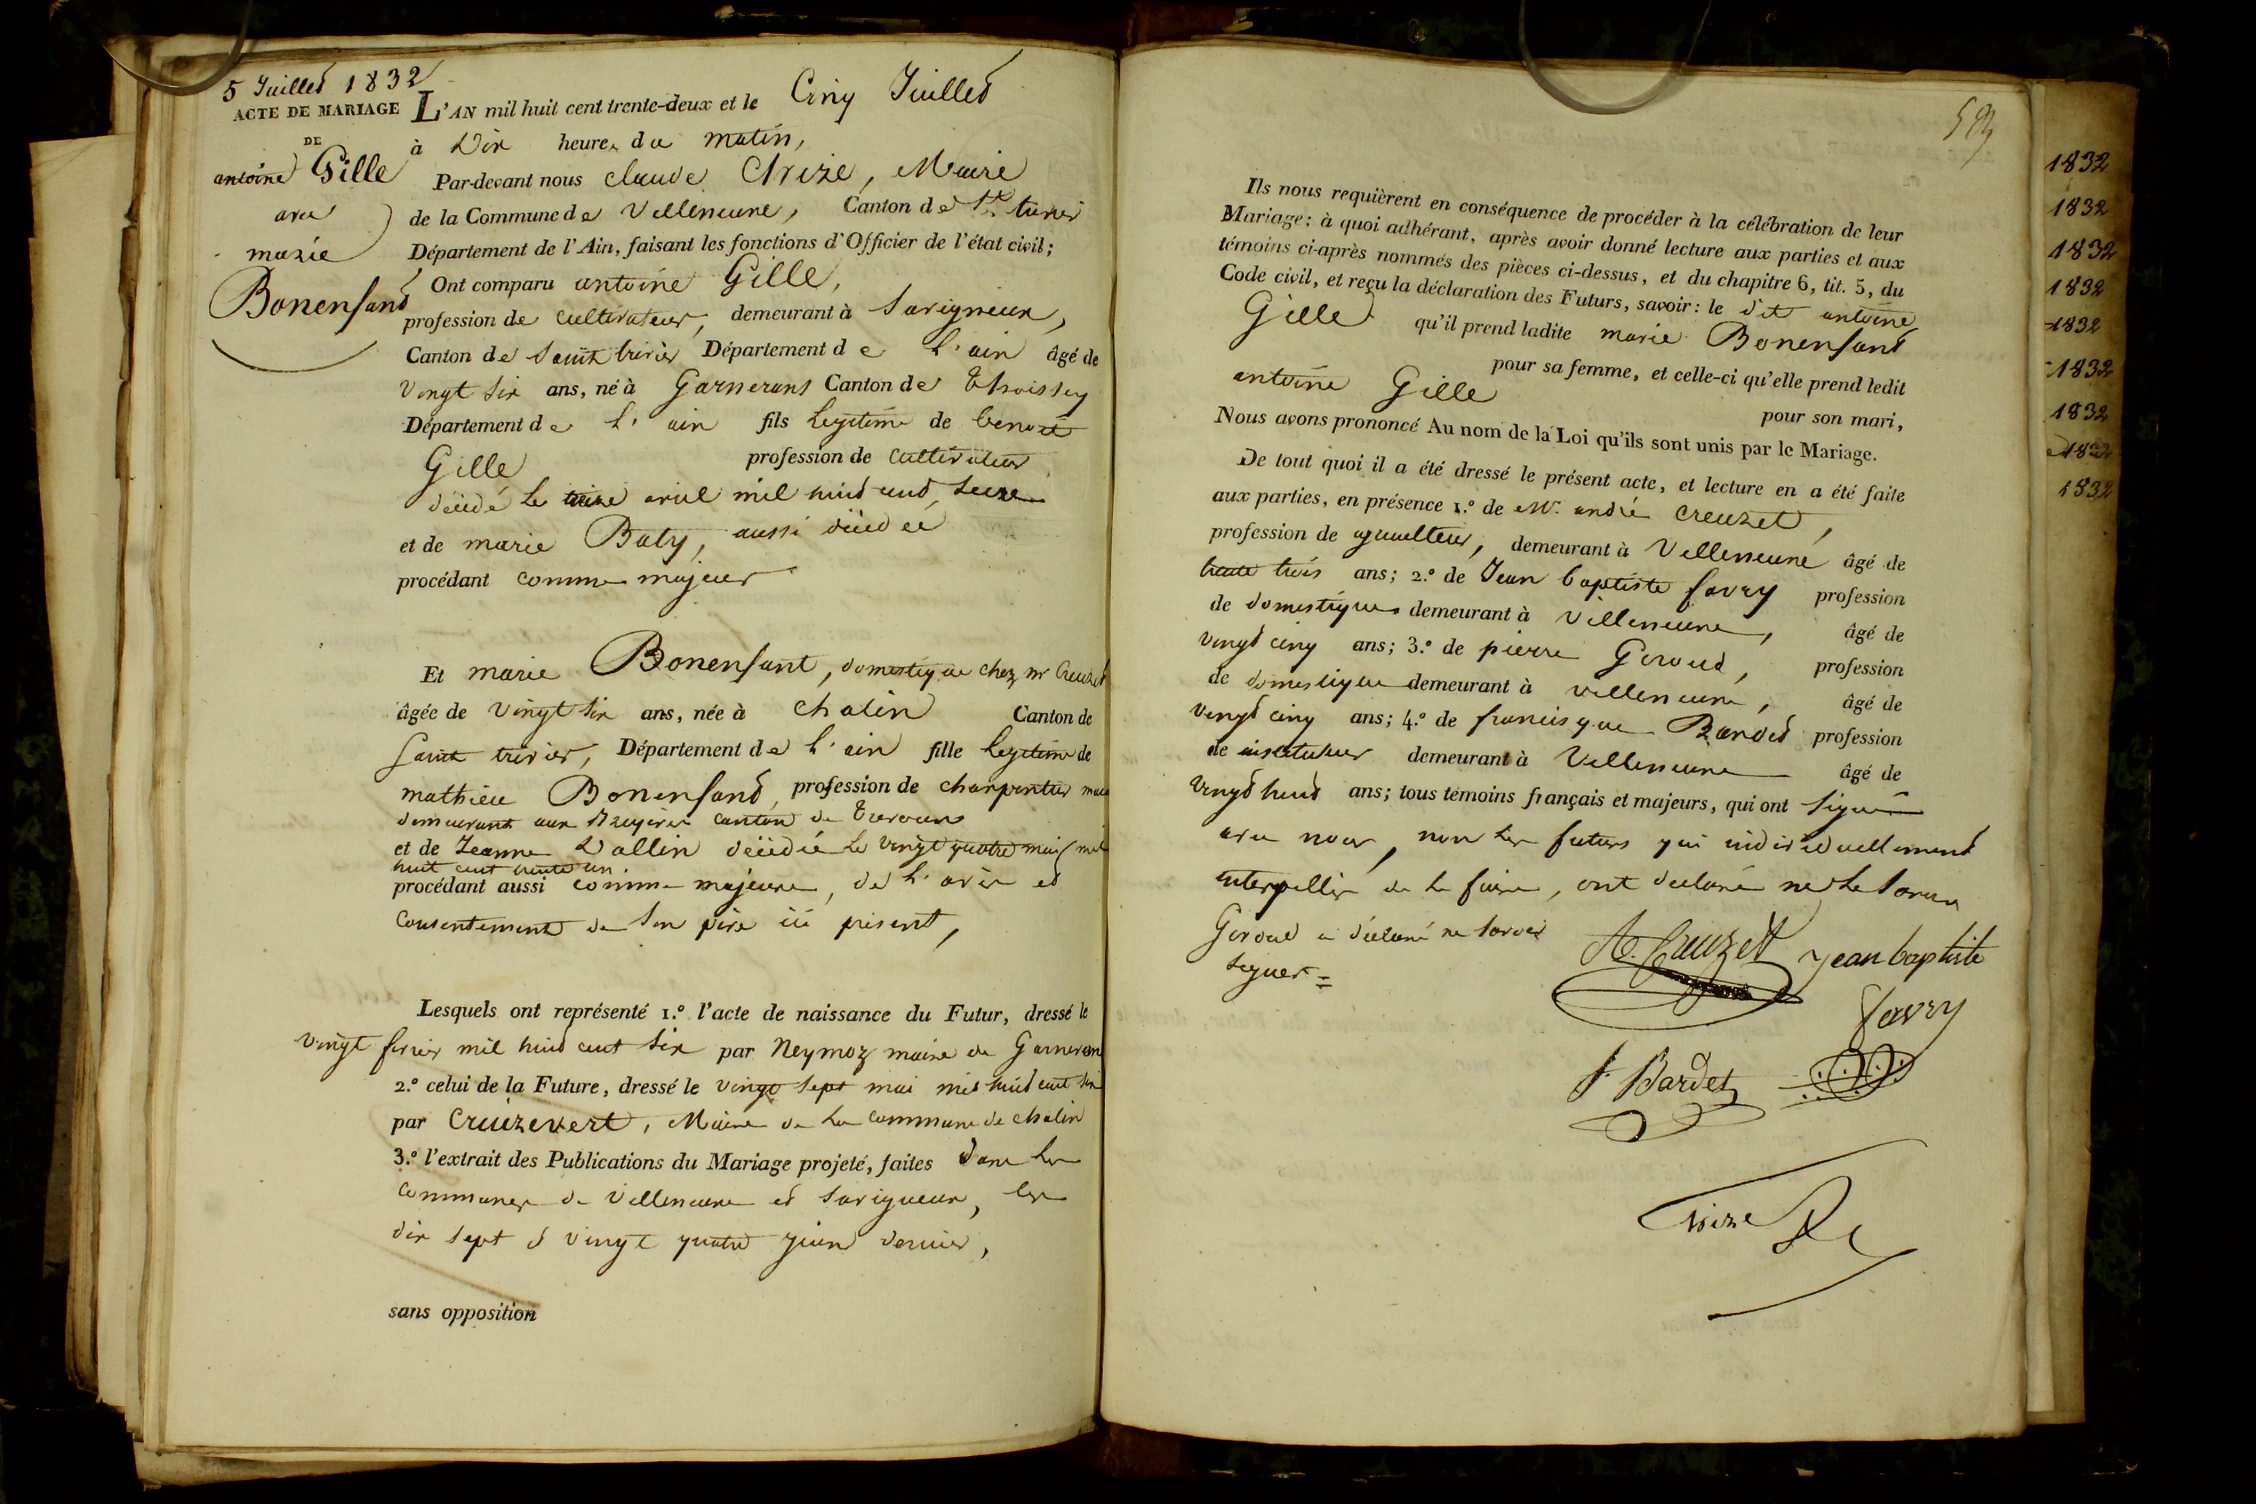 5 Juillet 1832
ACTE DE MARIAGE
DE
antoine Gille
avec
marie
Bonenfant
L'AN mil huit cent trente-deux et le Cinq Juillet
à Dix heures du matin,
Par-devant nous claude Trize, Maire
de la Commune de Villeneuve, Canton de St. trivier
Département de l'Ain, faisant les fonctions d'Officier de l'état civil;
Ont comparu antoine Gille,
profession de cultivateur, demeurant à Savigneux,
Canton de Saint trivier Département de L'ain âgé de
vingt six ans, né à Garnerans Canton de Thoissey
Département de L'ain fils Legitime de benoit
Gille profession de cultivateur
décédé le avril mil huit cent seize
et de marie Baty, aussi décédée
procédant comme majeur
Et marie Bonenfant, domestique chez mr Creuzet
âgée de vingt six ans, née à chalin Canton de
Saint trivier, Département de L'ain fille Legitime de
mathieu Bonenfant, profession de charpentier
demeurant aux Bruyeres canton de Trevoux
et de Jeanne Dallin décédée le vingt quatre mai mil
huit cent trente un
procédant aussi comme majeure, de l'avis et
consentement de son père ici présent,
Lesquels ont représenté 1.º l'acte de naissance du Futur, dressé le
vingt fevrier mil huit cent six par Neymoz maire de Garnerans
2.º celui de la Future, dressé le vingt sept mai mil huit cent six
par Creuzevert, Maire de la commune de chalin
3.º l'extrait des Publications du Mariage projeté, faites dans les
communes de Villeneuve et Savigneux, les
dix sept et vingt quatre juin dernier,
sans opposition
Ils nous requièrent en conséquence de procéder à la célébration de leur
Mariage: à quoi adhérant, après avoir donné lecture aux parties et aux
témoins ci-après nommés des pièces ci-dessus, et du chapitre 6, tit. 5, du
Code civil, et reçu la déclaration des Futurs, savoir: le dit antoine
Gille qu'il prend ladite marie Bonenfant
pour sa femme, et celle-ci qu'elle prend ledit
antoine Gille pour son mari,
Nous avons prononcé Au nom de la Loi qu'ils sont unis par le Mariage.
De tout quoi il a été dressé le présent acte, et lecture en a été faite
aux parties, en présence 1.º de Mr. andré Creuzet,
profession de agriculteur, demeurant à Villeneuve âgé de
trente trois ans; 2.º de Jean baptiste favry profession
de domestique demeurant à Villeneuve, âgé de
vingt cinq ans; 3.º de pierre Giroud, profession
de domestique demeurant à villeneuve, âgé de
vingt cinq ans; 4.º de francisque Bardet profession
de instituteur demeurant à Villeneuve âgé de
vingt huit ans; tous témoins français et majeurs, qui ont signé
avec nous, non les futurs qui individuellement
interpellés de le faire, ont declaré ne le savoir
Giroud a déclaré ne savoir
signer =
A. Creuzet
Jean baptiste
favry
f. Bardet
Trize
1832
1832
1832
1832
1832
1832
1832
1832
1832